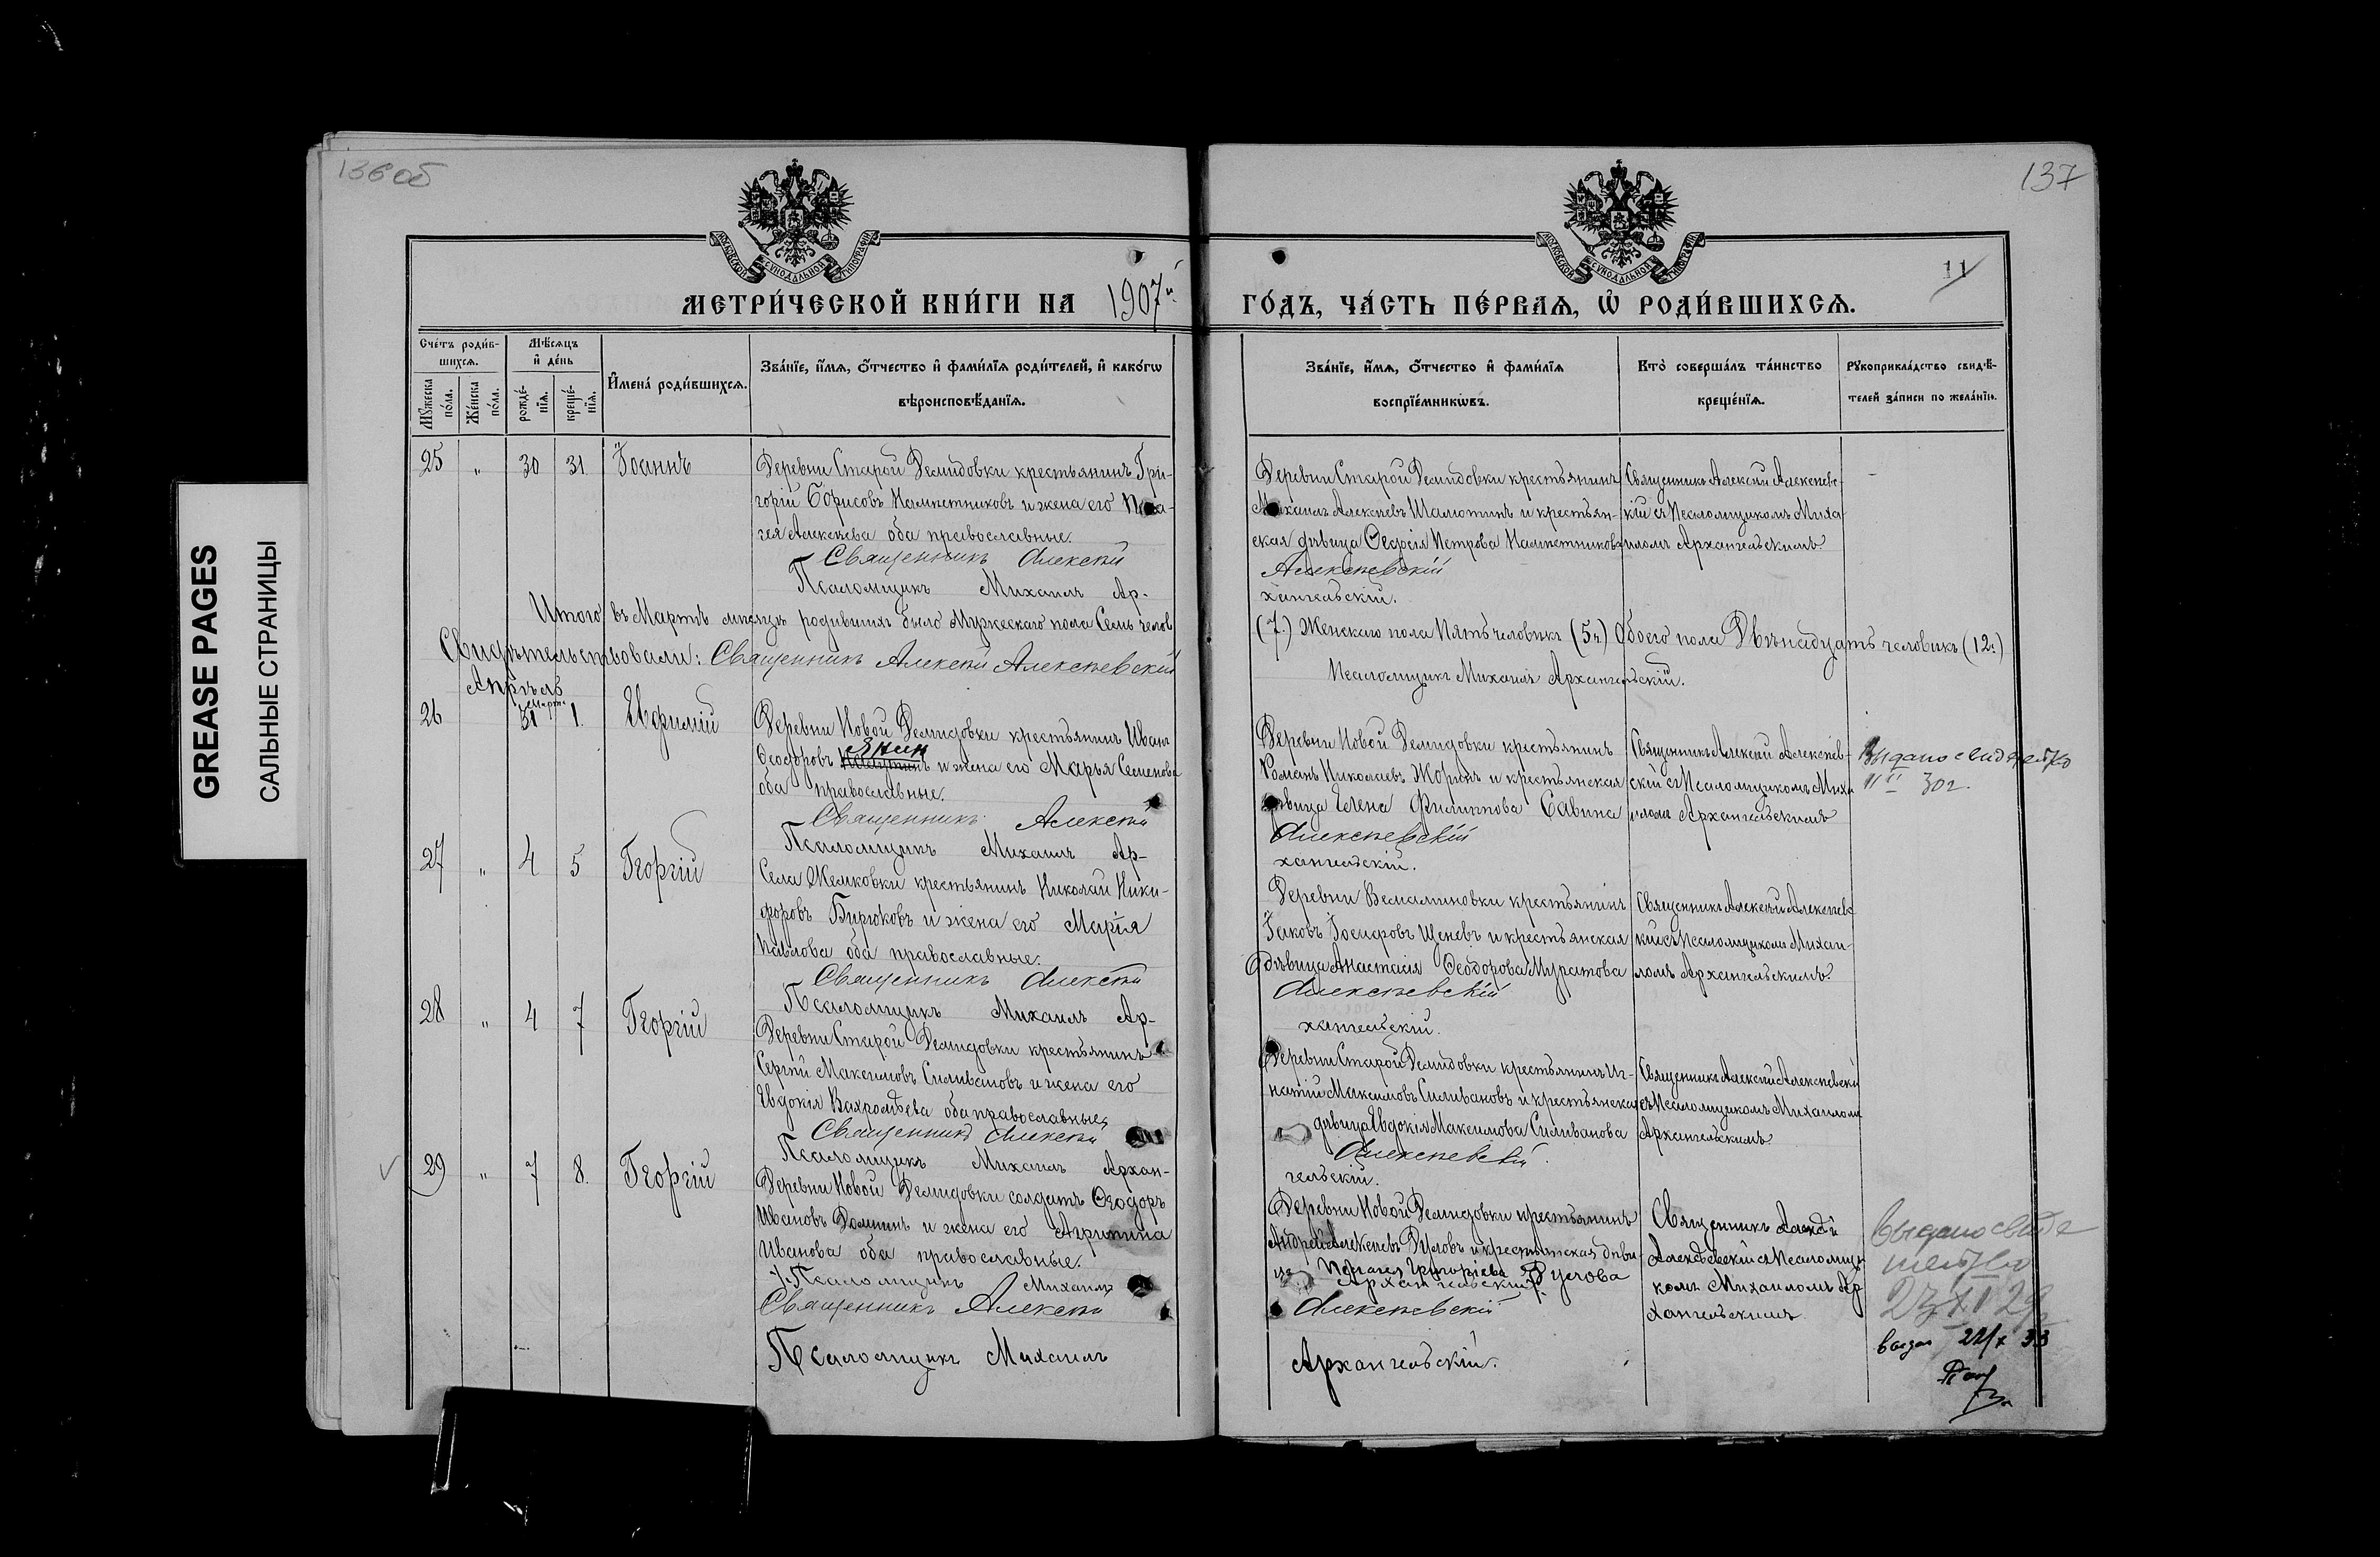 136 об
137
GREASE PAGES
САЛЬНЫЕ СТРАНИЦЫ
МОСКОВСКОЙ СѴНОДАЛЬНОЙ ТИПОГРАФІИ
МОСКОВСКОЙ СѴНОДАЛЬНОЙ ТИПОГРАФІИ
11
МЕТРИ́ЧЕСКОЙ КНИ́ГИ НА 1907й
ГО́ДЪ, ЧА́СТЬ ПЕ́РВАѦ, Ѡ҆ РОДИ́ВШИХСѦ.
Сче́тъ роди́в-
шихсѧ.
Мꙋ́жеска по́ла.
Же́нска по́ла.
Мѣ́сѧцъ
и҆ де́нь
рожде́-
нїѧ.
креще́-
нїѧ.
И҆мена̀ роди́вшихсѧ.
Зва́нїе, и҆́мѧ, ѻ҆́тчество и҆ фами́лїѧ роди́телей, и҆ како́гѡ
вѣроисповѣ́данїѧ.
Зва́нїе, и҆́мѧ, ѻ҆́тчество и҆ фами́лїѧ
воспрїе́мникѡвъ.
Кто̀ соверша́лъ та́инство
креще́нїѧ.
Рꙋкоприкла́дство свидѣ́-
телей за́писи по жела́нїю.
25 " 30 31 Іоаннъ
Деревни Старой Демидовки крестьянинъ Гри-
горій Борисовъ Намѣстниковъ и жена его Пела-
гея Алексѣева оба православные.
Священникъ Алексѣй
Псаломщикъ Михаилъ Ар-
Деревни Старой Демидовки крестьянинъ
Михаилъ Алексѣевъ Шалютинъ и крестьян-
ская дѣвица Петрова Намѣстникова
Алексѣевскій
хангельскій.
Священникъ Алексѣй Алексѣев-
скій съ Псаломщикомъ Миха-
иломъ Архангельскимъ.
Итого въ Мартѣ мѣсяцѣ родившихъ было Мужескаго пола Семь челов
(7.) Женскаго пола Пять человѣкъ (5ч.) Обоего пола Двѣнадцать человѣкъ (12.)
Свидѣтельствовали: Священникъ Алексѣй Алексѣевскій
Псаломщикъ Михаилъ Архангельскій.
Апрѣль
Марта
26 31 1. Евѳимій
Деревни Новой Демидовки крестьянинъ Иванъ
Ѳеодоровъ Янин и жена его Марья Семенова
оба православные.
Священникъ Алексѣй
Псаломщикъ Михаилъ Ар-
Деревни Новой Демидовки крестьянинъ
Романъ Николаевъ Жоринъ и крестьянская
дѣвица Елена Филиппова Савина
Алексѣевскій
хангельскій.
Священникъ Алексѣй Алексѣев-
скій съ Псаломщикомъ Миха
иломъ Архангельскимъ
Выдано свидетство
30 г.
27 " 4 5 Георгій
Села Жемковки крестьянинъ Николай Ники-
форовъ Бирюковъ и жена его Марія
Павлова оба православные.
Священникъ Алексѣй
Псаломщикъ Михаилъ Ар-
Деревни крестьянинъ
Іаковъ Іосифовъ Щеневъ и крестьянская
дѣвица Анастасія Ѳеодорова Муратова
Алексѣевскій
хангельскій.
Священникъ Алексѣй Алексѣевс
кій съ Псаломщикомъ Михаи-
ломъ Архангельскимъ.
28 " 4 7 Георгій
Деревни Старой Демидовки крестьянинъ
Сергѣй Максимовъ Силивановъ и жена его
Евдокія Вахромѣева оба православные
Священникъ Алексѣй
Псаломщикъ Михаилъ Архан-
Деревни Старой Демидовки крестьянинъ Иг-
натій Максимовъ Силивановъ и крестьянская
дѣвица Евдокія Максимова Силиванова
Алексѣевскій.
гельскій.
Священникъ Алексѣй Алексѣевскій
съ Псаломщикомъ Михаиломъ
Архангельскимъ
29 " 7 8. Георгій
Деревни Новой Демидовки солдатъ Ѳеодоръ
Ивановъ Доминъ и жена его Агрипина
Иванова оба православные.
Псаломщикъ Михаилъ
Священникъ Алексѣй
Псаломщикъ Михаилъ
Деревни Новой Демидовки крестьянинъ
Андрей Алексѣевъ Дусловъ и крестьянская дѣви
ца Пелагея Григоріева
Архангельскій.
Алексѣевскій
Архангельскій.
Священникъ Алексѣй
Алексѣевскій съ Псаломщи
комъ Михаиломъ Ар
хангельскимъ
Выдано свиде
тельство
23/XI 29
выдан 22/X 33